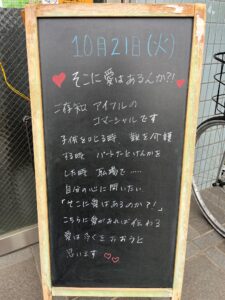 10月21日(火)
そこに愛はあるんか?!
ご存知 アイフルの
コマーシャルです
子供を叱る時 親を介護
する時 パートナーとけんかを
した時 私場で……
自分の心に聞いたい
「そこに愛はあるのか?!」
こちらに愛があれば伝わる
愛は多くをおおうと
思います